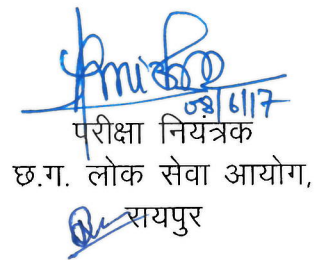 08/6/17
परीक्षा नियंत्रक
छ.ग. लोक सेवा आयोग,
रायपुर